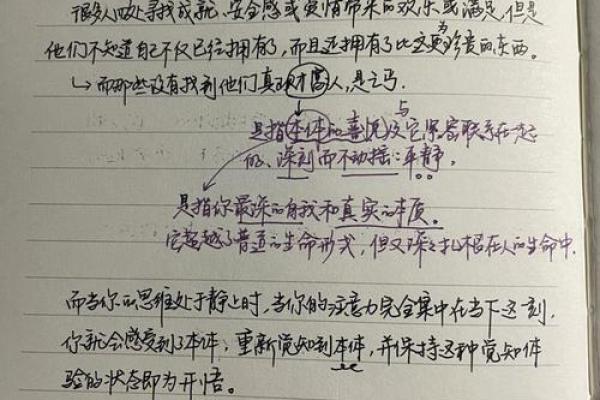 很多人四处寻找成就、安全感或爱情带来的欢乐或满足,但是
他们不知道自己不仅已经拥有了,而且还拥有了比这更为珍贵的东西。
↳而那些没有找到他们真正财富人,是乞丐.
是指本体的喜悦及与它紧密联系在一起
的、深刻而不动摇的平静。
是指你最深的自我和真实的本质。
它超越了普通的生命形式,但又深深扎根在人的生命中.
而当你的思维处于静止时,当你的注意力完全集中在当下这一刻,
你就会感受到了本体;重新觉知到本体,并保持这种觉知体
验的状态即为开悟。